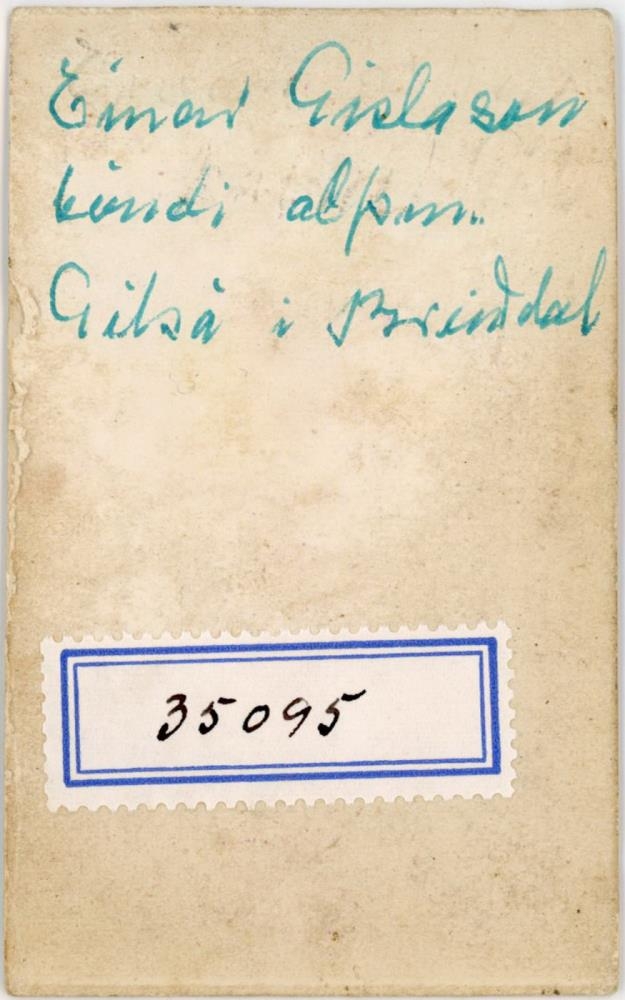 Einar Gislason
bóndi alþm.
Gilsá i Breiðdal
35095